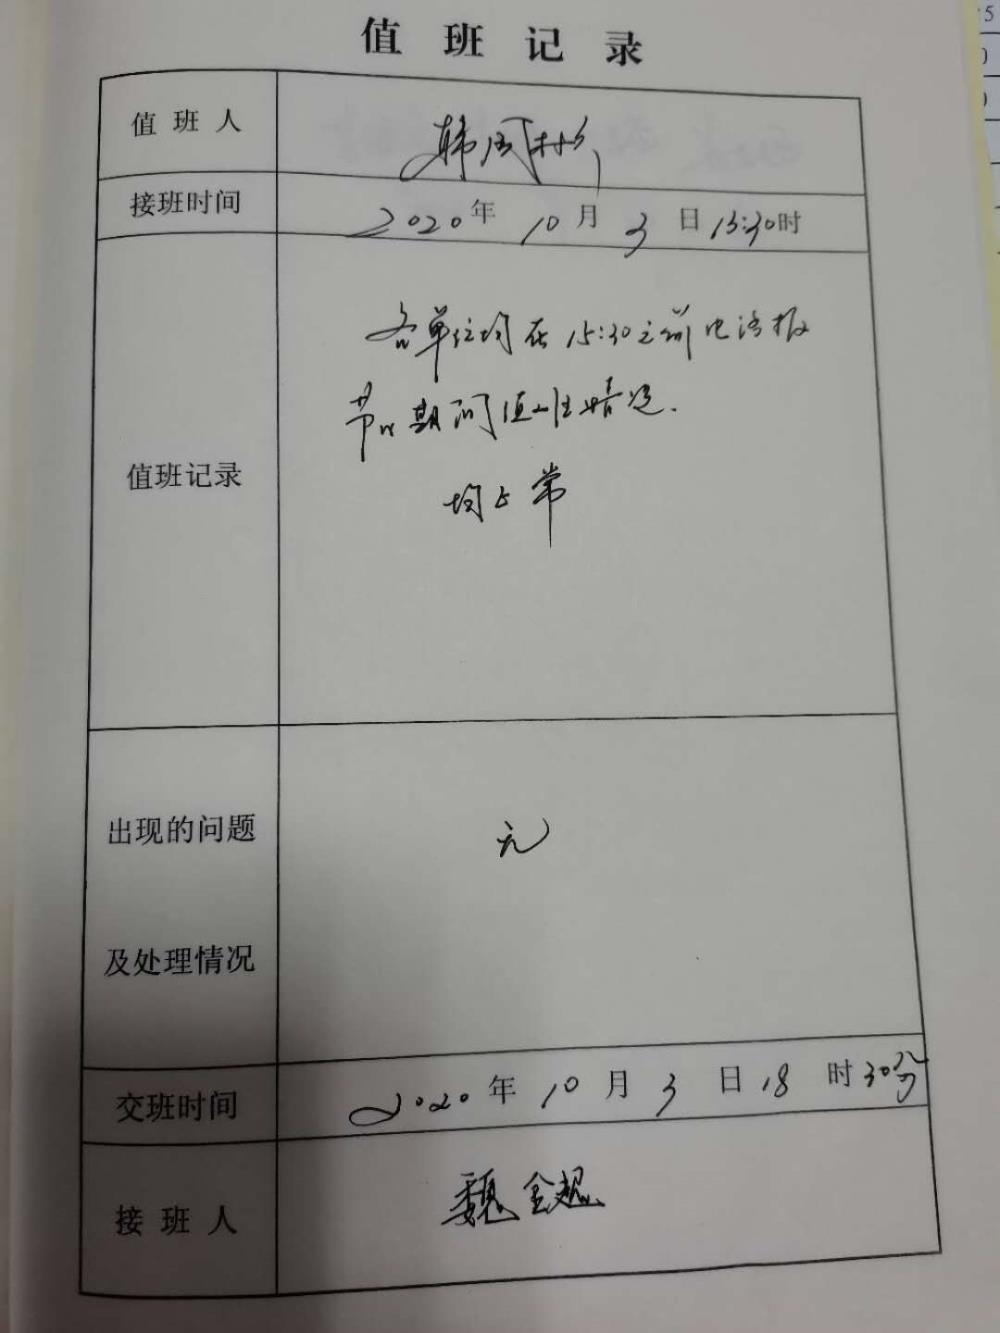 值班记录
值班人
接班时间 2020年10月3日15:30时
各单位均在15:30之前电话报
节日期间值班情况.
值班记录
均正常
出现的问题
无
及处理情况
交班时间 2020年10月3日18时30分
接班人 魏金超